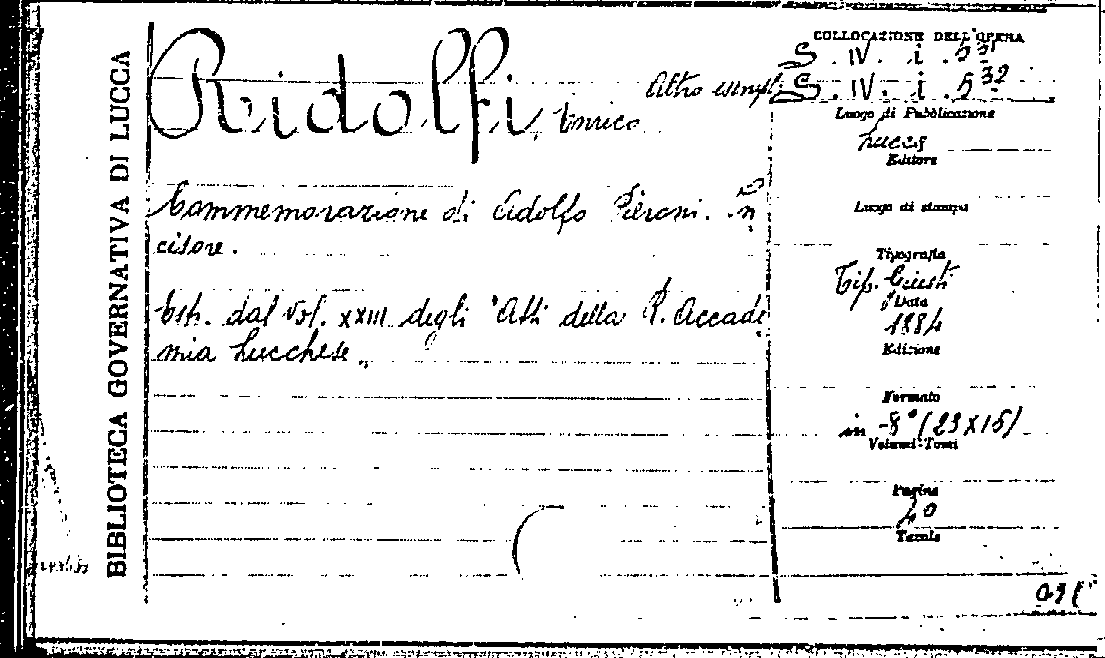 BIBLIOTECA GOVERNATIVA DI LUCCA
Ridolfi, Enrico
Altro esempl.
Commemorazione di Adolfo Pieroni. In
cisore.
Estr. dal Vol. XXIII degli "Atti della R. Accade
mia Lucchese„
COLLOCAZIONE DELL'OPERA
S. IV. i. 5 31
S. IV. i. 5 32
Luogo di Pubblicazione
Lucca
Editore
Luogo di stampa
Tipografia
Tip. Giusti
Data
1884
Edizione
Formato
in -8° (23X15)
Volumi-Tomi
Pagine
40
Tavole